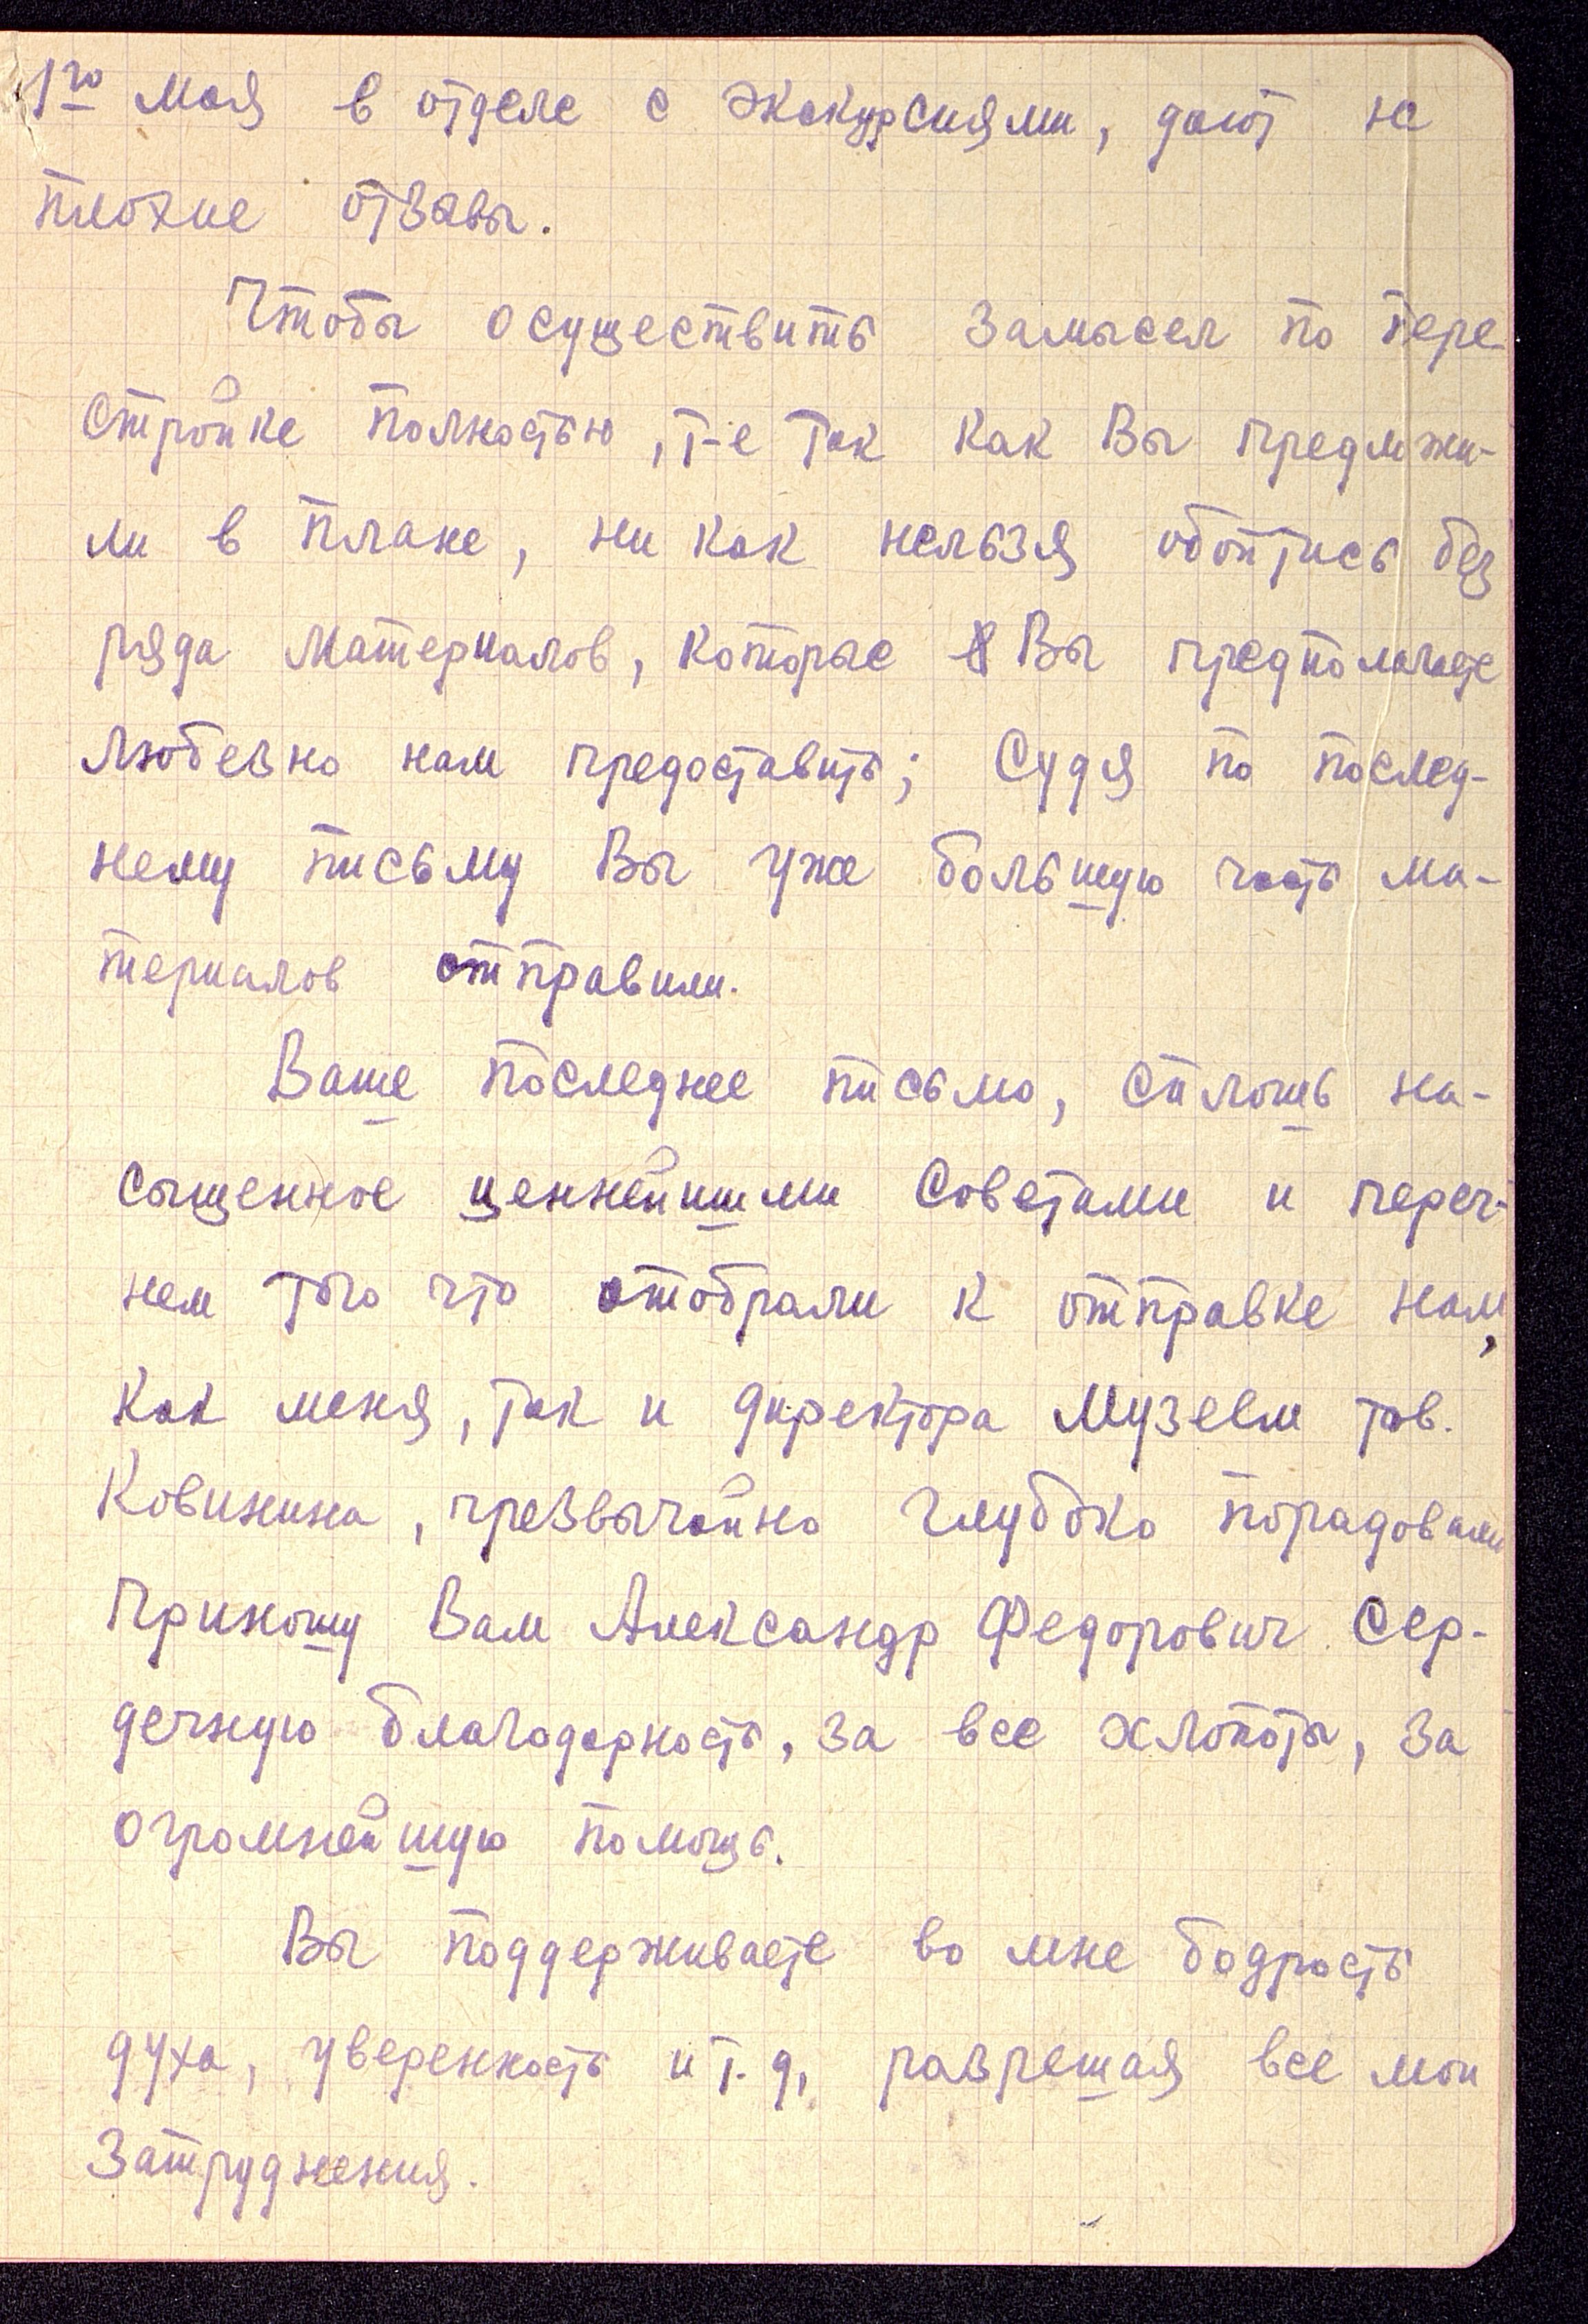 1го мая в отделе с экскурсиями, дают не
плохие отзывы.
Чтобы осуществить замысел по пере-
стройке полностью, т-е так как Вы предложи-
ли в плане, ни как нельзя обойтись без
ряда материалов, которые Вы предполагаете
любезно нам предоставить; Судя по послед-
нему письму Вы уже большую часть ма-
териалов отправили.
Ваше последнее письмо, сплошь на-
сыщенное ценнейшими советами и переч-
нем того что отобрали к отправке нам,
как меня, так и директора Музеем тов.
Ковинина, чрезвычайно глубоко порадовали
Приношу Вам Александр Федорович Сер-
дечную благодарность, за все хлопоты, за
огромнейшую помощь.
Вы поддерживаете во мне бодрость
духа, уверенность и т.д, разрешая все мои
Затруднения.